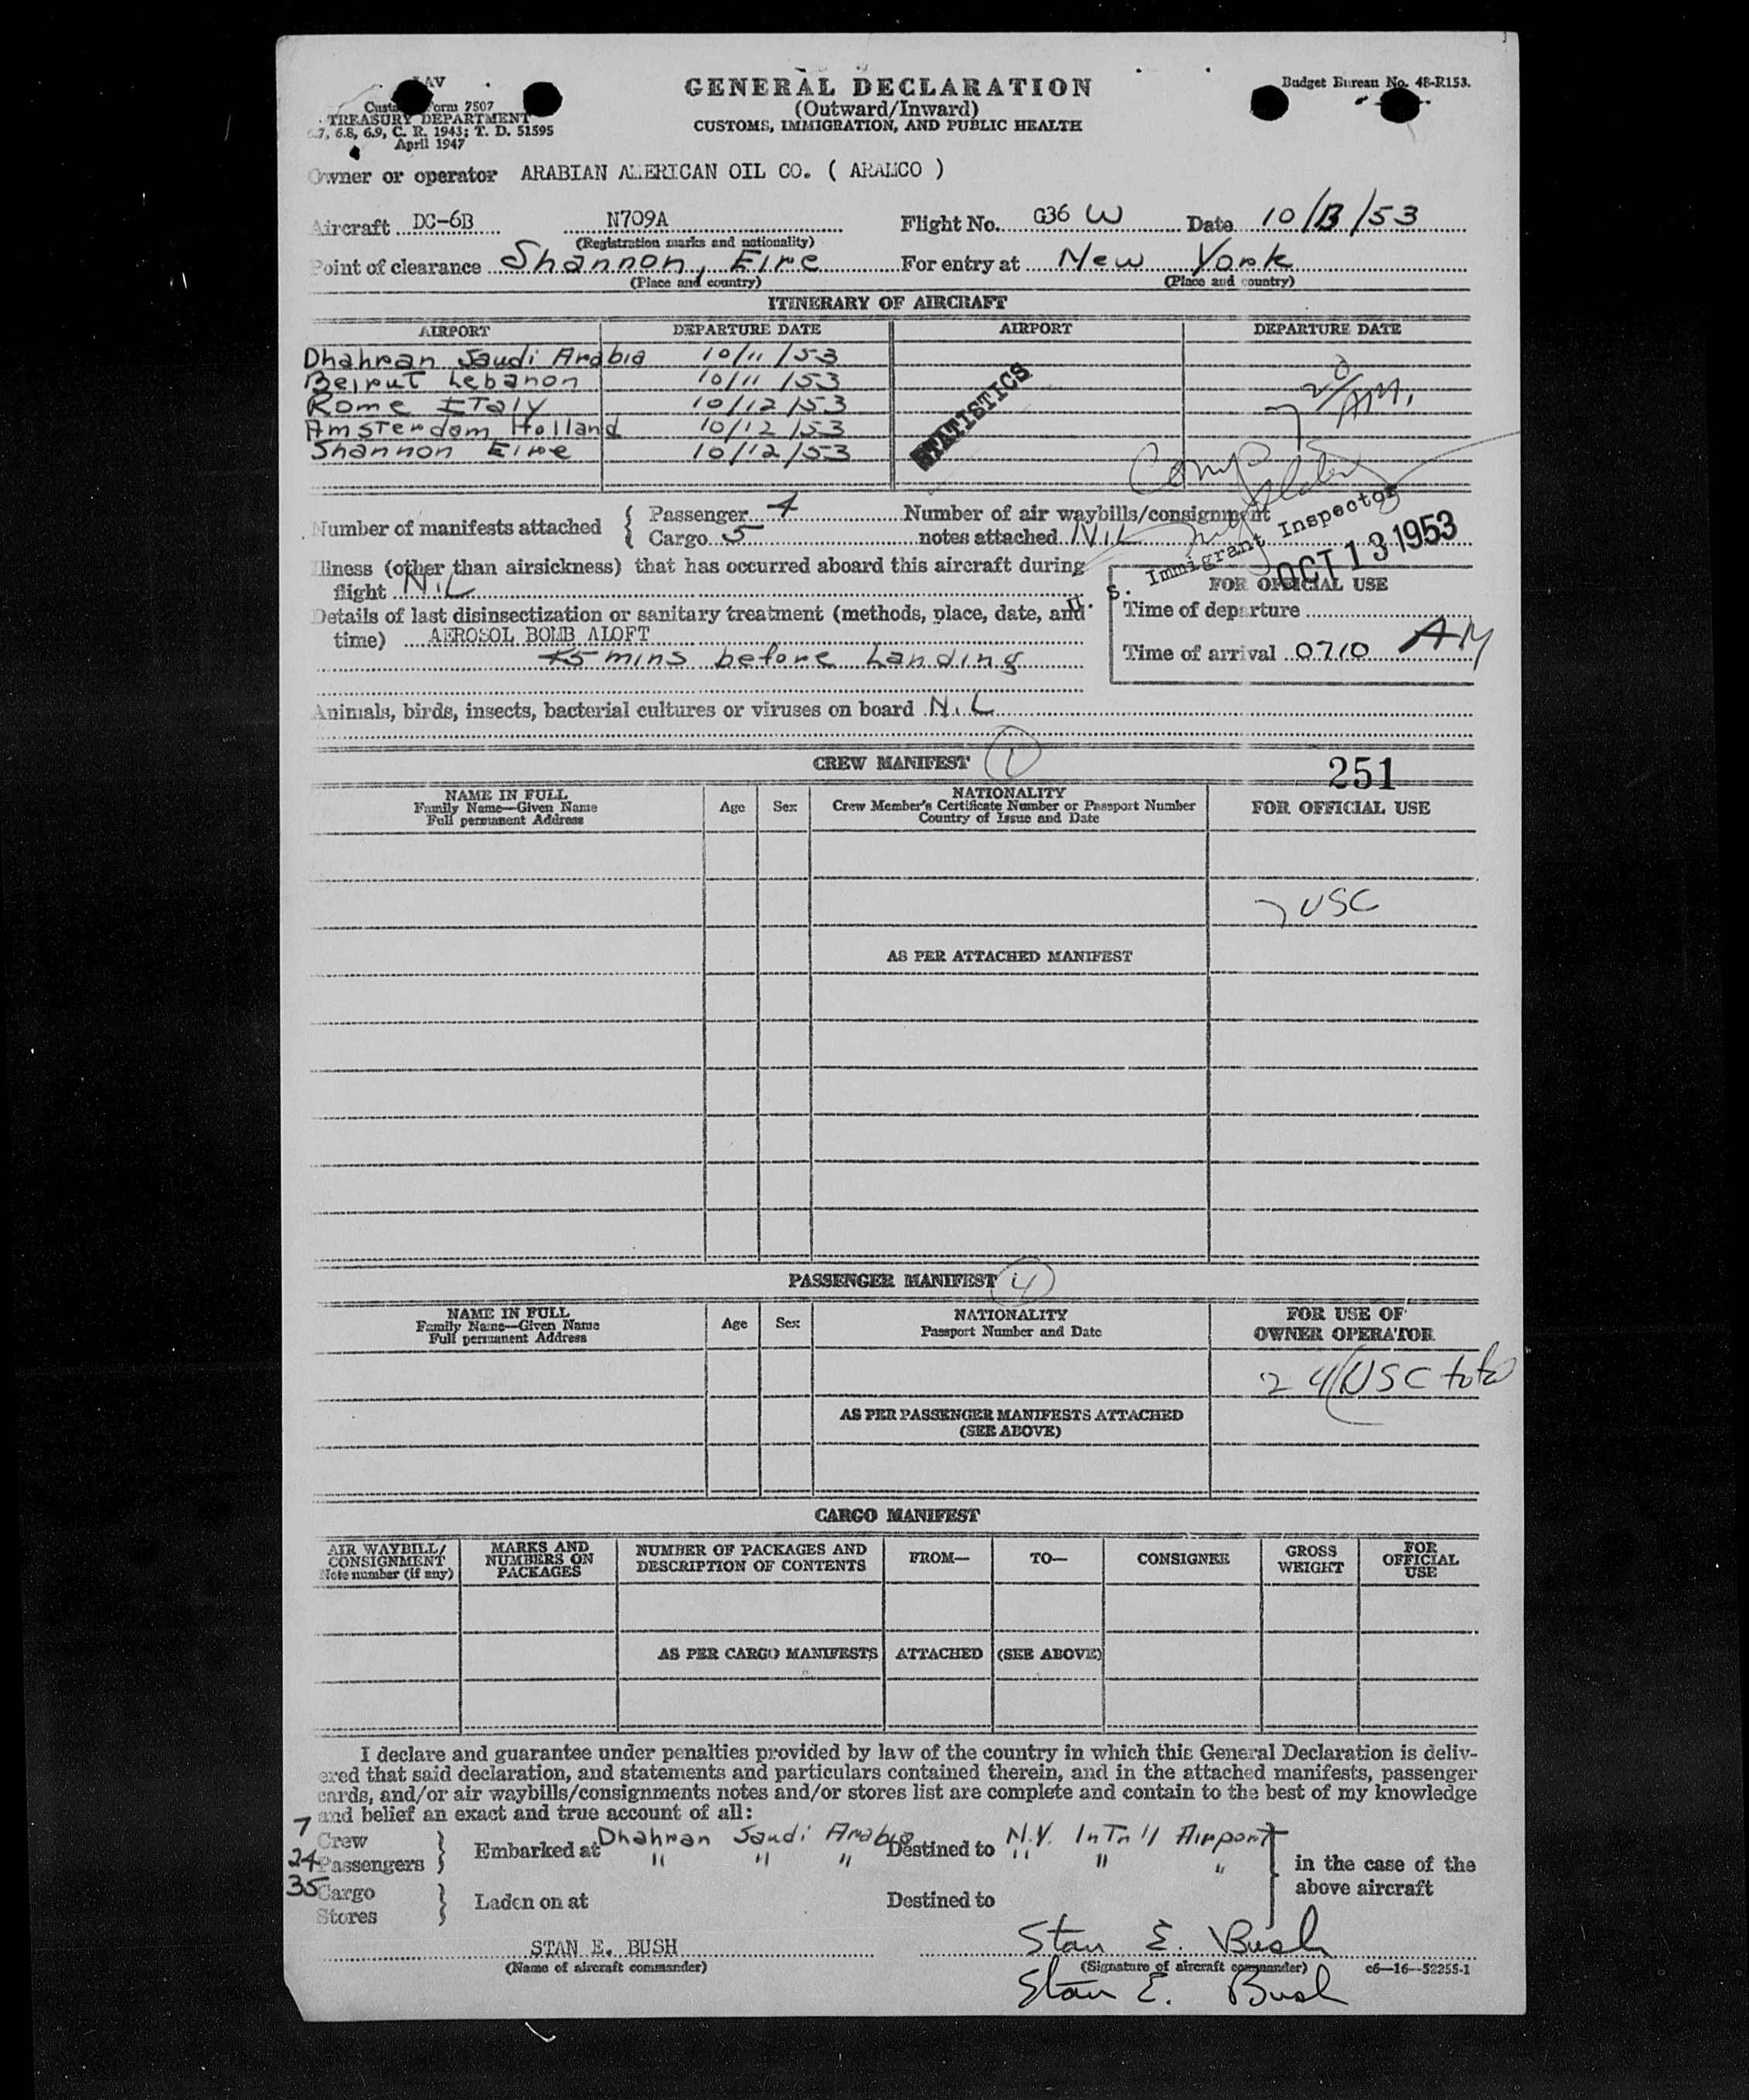 GENERAL DECLARATION
(Outward/Inward)
CUSTOMS, IMMIGRATION, AND PUBLIC HEALTH
Budget Bureau No. 48-R153.
Form 7507
TREASURY DEPARTMENT
6.7, 6.8, 6.9, C. R. 1943; T. D. 51595
April 1947
Owner or operator ARABIAN AMERICAN OIL CO. ( ARAMCO )
Aircraft DC-6B N709A Flight No. G36 W Date 10/13/53
(Registration marks and nationality)
Point of clearance Shannon, Eire For entry at New York
(Place and country) (Place and country)
ITINERARY OF AIRCRAFT
AIRPORT DEPARTURE DATE AIRPORT DEPARTURE DATE
Dhahran Saudi Arabia 10/11/53
Beirut Lebanon 10/11/53
Rome ITaly 10/12/53
Amsterdam Holland 10/12/53
Shannon Eire 10/12/53
STATISTICS
7 20/AM.
Number of manifests attached { Passenger 4 Number of air waybills/consignment
Cargo 5 notes attached NiL
U. S. Immigrant Inspector
OCT 13 1953
Illness (other than airsickness) that has occurred aboard this aircraft during
flight NiL
FOR OFFICIAL USE
Details of last disinsectization or sanitary treatment (methods, place, date, and
time) AEROSOL BOMB ALOFT
45 mins before Landing
Time of departure
Time of arrival 0710 AM
Animals, birds, insects, bacterial cultures or viruses on board NiL
CREW MANIFEST 1
251
NAME IN FULL
Family Name—Given Name
Full permanent Address
Age Sex
NATIONALITY
Crew Member's Certificate Number or Passport Number
Country of Issue and Date
FOR OFFICIAL USE
7 USC
AS PER ATTACHED MANIFEST
PASSENGER MANIFEST 4
NAME IN FULL
Family Name—Given Name
Full permanent Address
Age Sex
NATIONALITY
Passport Number and Date
FOR USE OF
OWNER OPERATOR
24 USC total
AS PER PASSENGER MANIFESTS ATTACHED
(SEE ABOVE)
CARGO MANIFEST
AIR WAYBILL/
CONSIGNMENT
Note number (if any)
MARKS AND
NUMBERS ON
PACKAGES
NUMBER OF PACKAGES AND
DESCRIPTION OF CONTENTS
FROM— TO— CONSIGNEE
GROSS
WEIGHT
FOR
OFFICIAL
USE
AS PER CARGO MANIFESTS ATTACHED (SEE ABOVE)
I declare and guarantee under penalties provided by law of the country in which this General Declaration is deliv-
ered that said declaration, and statements and particulars contained therein, and in the attached manifests, passenger
cards, and/or air waybills/consignments notes and/or stores list are complete and contain to the best of my knowledge
and belief an exact and true account of all:
7 Crew } Embarked at Dhahran Saudi Arabia Destined to N.Y. InTn'l Airport
24 Passengers " " " " " "
in the case of the
above aircraft
35 Cargo } Laden on at Destined to
Stores
STAN E. BUSH Stan E. Bush
(Name of aircraft commander) (Signature of aircraft commander) c6—16—52255-1
Stan E. Bush